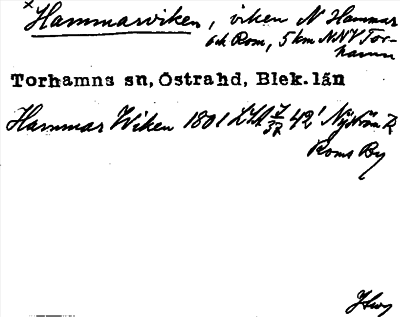 × Hammarviken, viken N Hammar
och Rom, 5 km NNV Tor-
hamn
Torhamns sn, Östrahd, Blek. län
Hammar Wiken 1801 LSA 42 Nyström
Roms By